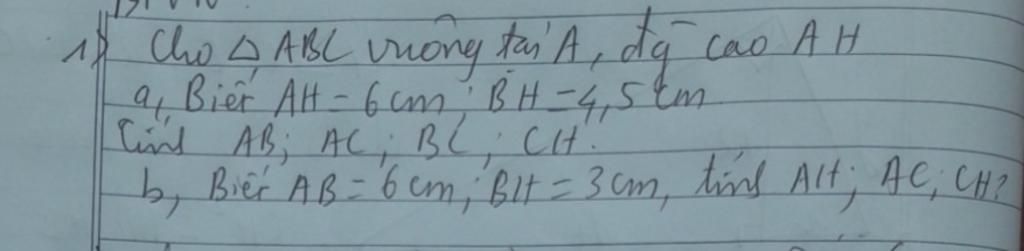 1) Cho △ ABC vuông tại A, đg cao AH
a, Biết AH = 6cm; BH = 4,5 cm
Tính AB; AC; BC; CH.
b, Biết AB = 6 cm; BH = 3cm, tính AH; AC; CH?